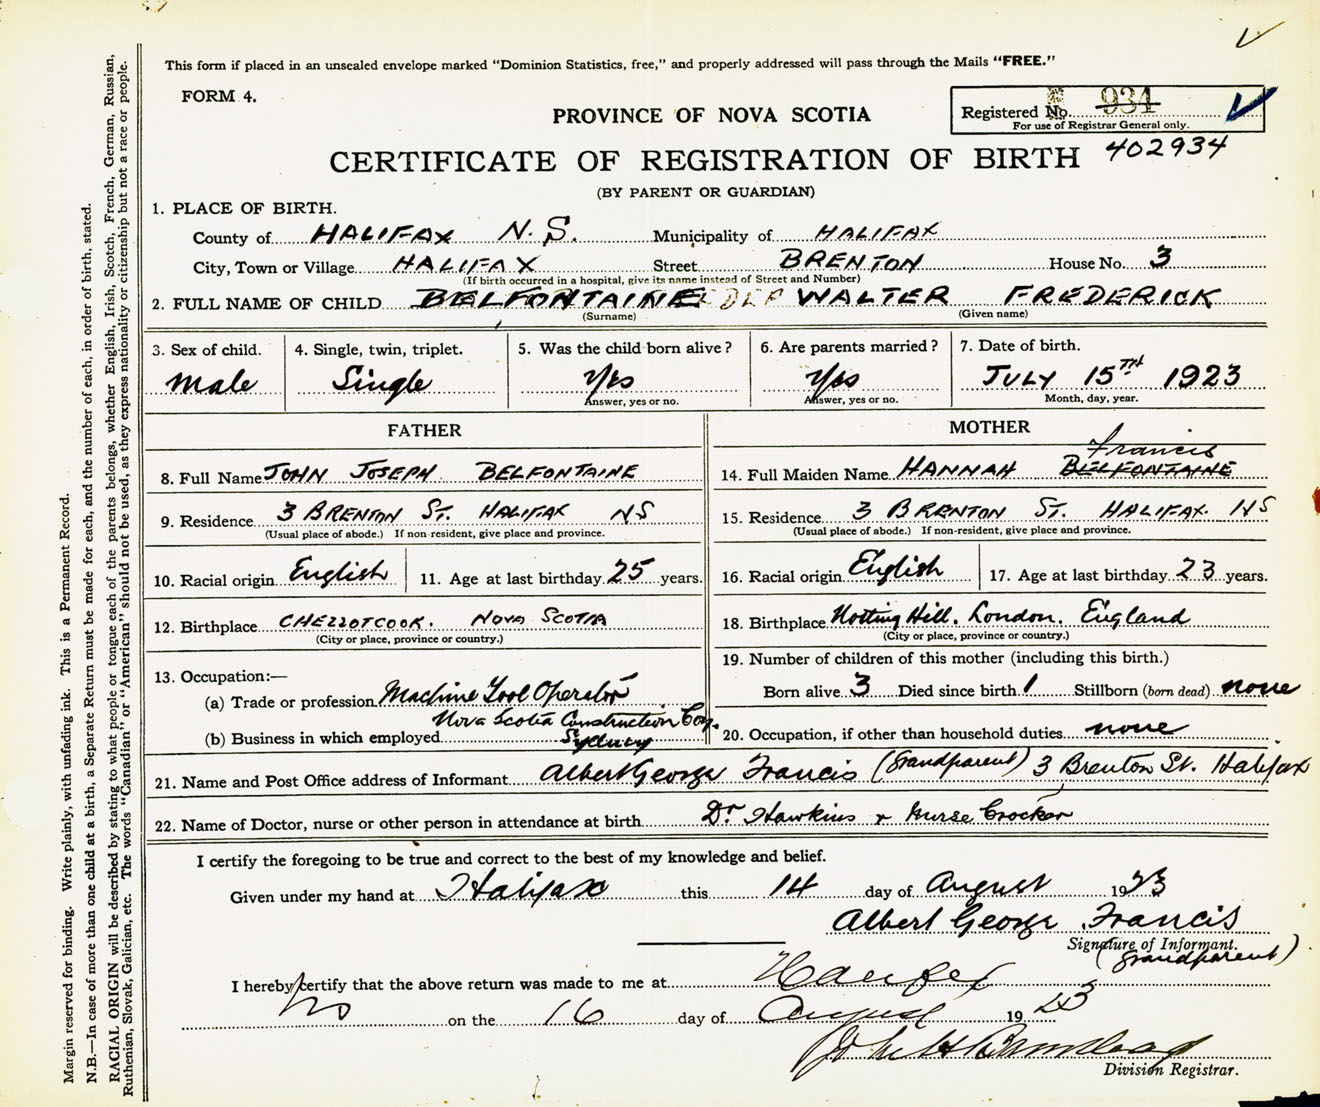 This form if placed in an unsealed envelope marked “Dominion Statistics, free,” and properly addressed will pass through the Mails “FREE.”
FORM 4.
PROVINCE OF NOVA SCOTIA
Registered No. 934
For use of Registrar General only.
CERTIFICATE OF REGISTRATION OF BIRTH 402934
(BY PARENT OR GUARDIAN)
1. PLACE OF BIRTH.
County of HALIFAX N.S. Municipality of HALIFAX
City, Town or Village HALIFAX Street BRENTON House No. 3
(If birth occurred in a hospital, give its name instead of Street and Number)
2. FULL NAME OF CHILD BELFONTAINE WALTER FREDERICK
(Surname) (Given name)
3. Sex of child. 4. Single, twin, triplet. 5. Was the child born alive? 6. Are parents married? 7. Date of birth.
Male Single Yes Yes JULY 15TH 1923
Answer, yes or no. Answer, yes or no. Month, day, year.
FATHER
8. Full Name JOHN JOSEPH BELFONTAINE
9. Residence 3 BRENTON ST. HALIFAX NS
(Usual place of abode.) If non-resident, give place and province.
10. Racial origin English 11. Age at last birthday 25 years.
12. Birthplace CHEZZOTCOOK. NOVA SCOTIA
(City or place, province or country.)
13. Occupation:—
(a) Trade or profession Machine Tool Operator
Nova Scotia Construction Coy.
(b) Business in which employed Sydney
MOTHER
Francis
14. Full Maiden Name HANNAH BELFONTAINE
15. Residence 3 BRENTON ST. HALIFAX. NS
(Usual place of abode.) If non-resident, give place and province.
16. Racial origin English 17. Age at last birthday 23 years.
18. Birthplace Notting Hill. London. England
(City or place, province or country.)
19. Number of children of this mother (including this birth.)
Born alive 3 Died since birth 1 Stillborn (born dead) none
20. Occupation, if other than household duties none
21. Name and Post Office address of Informant Albert George Francis (Grandparent) 3 Brenton St. Halifax
22. Name of Doctor, nurse or other person in attendance at birth Dr. Hawkins & Nurse Crocker
I certify the foregoing to be true and correct to the best of my knowledge and belief.
Given under my hand at Halifax this 14 day of August 1923
Albert George Francis
Signature of Informant.
(Grandparent)
I hereby certify that the above return was made to me at Halifax
NS on the 16 day of August 1923
Division Registrar.
Margin reserved for binding. Write plainly, with unfading ink. This is a Permanent Record.
N.B.—In case of more than one child at a birth, a Separate Return must be made for each, and the number of each, in order of birth, stated.
RACIAL ORIGIN will be described by stating to what people or tongue each of the parents belongs, whether English, Irish, Scotch, French, German, Russian,
Ruthenian, Slovak, Galician, etc. The words “Canadian” or “American” should not be used, as they express nationality or citizenship but not a race or people.